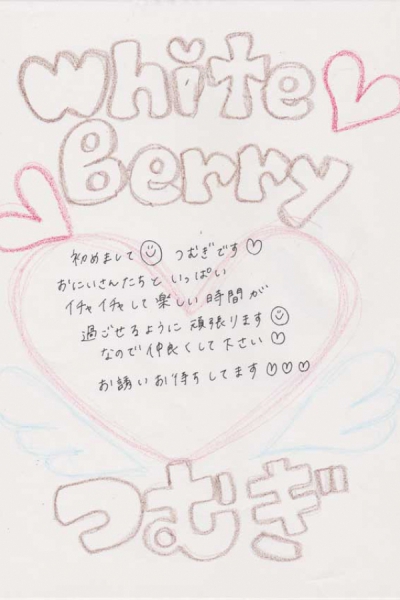 White
Berry
初めまして☺ つむぎです♡
おにいさんたちと いっぱい
イチャイチャして楽しい時間が
過ごせるように頑張ります☺
なので仲良くして下さい♡
お誘いお待ちしてます♡♡♡
つむぎ